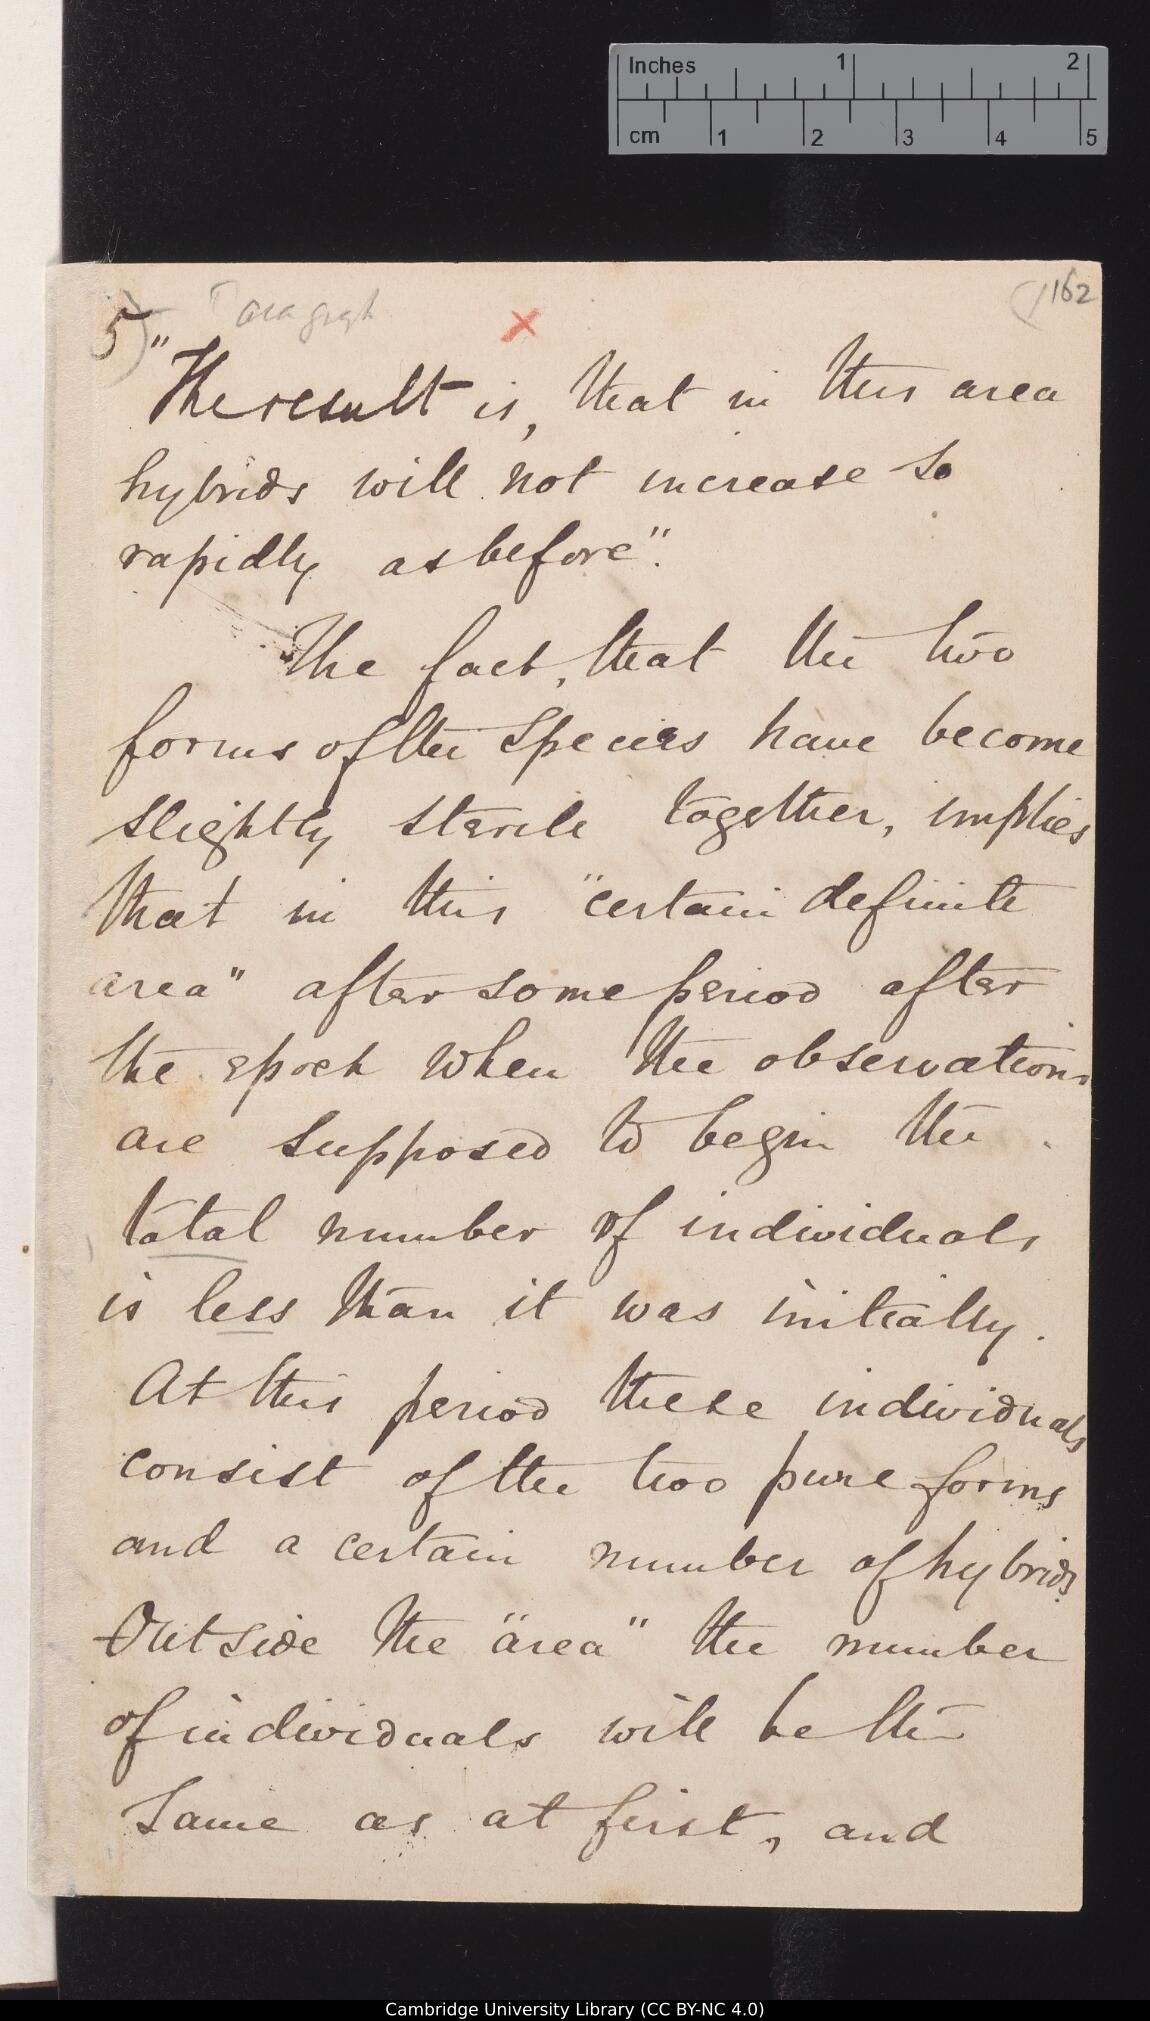 Inches 1 2
cm 1 2 3 4 5
5) Paragraph x 162
"The result is, that in this area
hybrids will not increase so
rapidly as before".
The fact, that the two
forms of the species have become
slightly sterile together, implies
that in this "certain definite
area" after some period after
the epoch when the observations
are supposed to begin the
total number of individuals
is less than it was initially.
At this period these individuals
consist of the two pure forms
and a certain number of hybrids.
Outside the "area" the number
of individuals will be the
same as at first, and
Cambridge University Library (CC BY-NC 4.0)